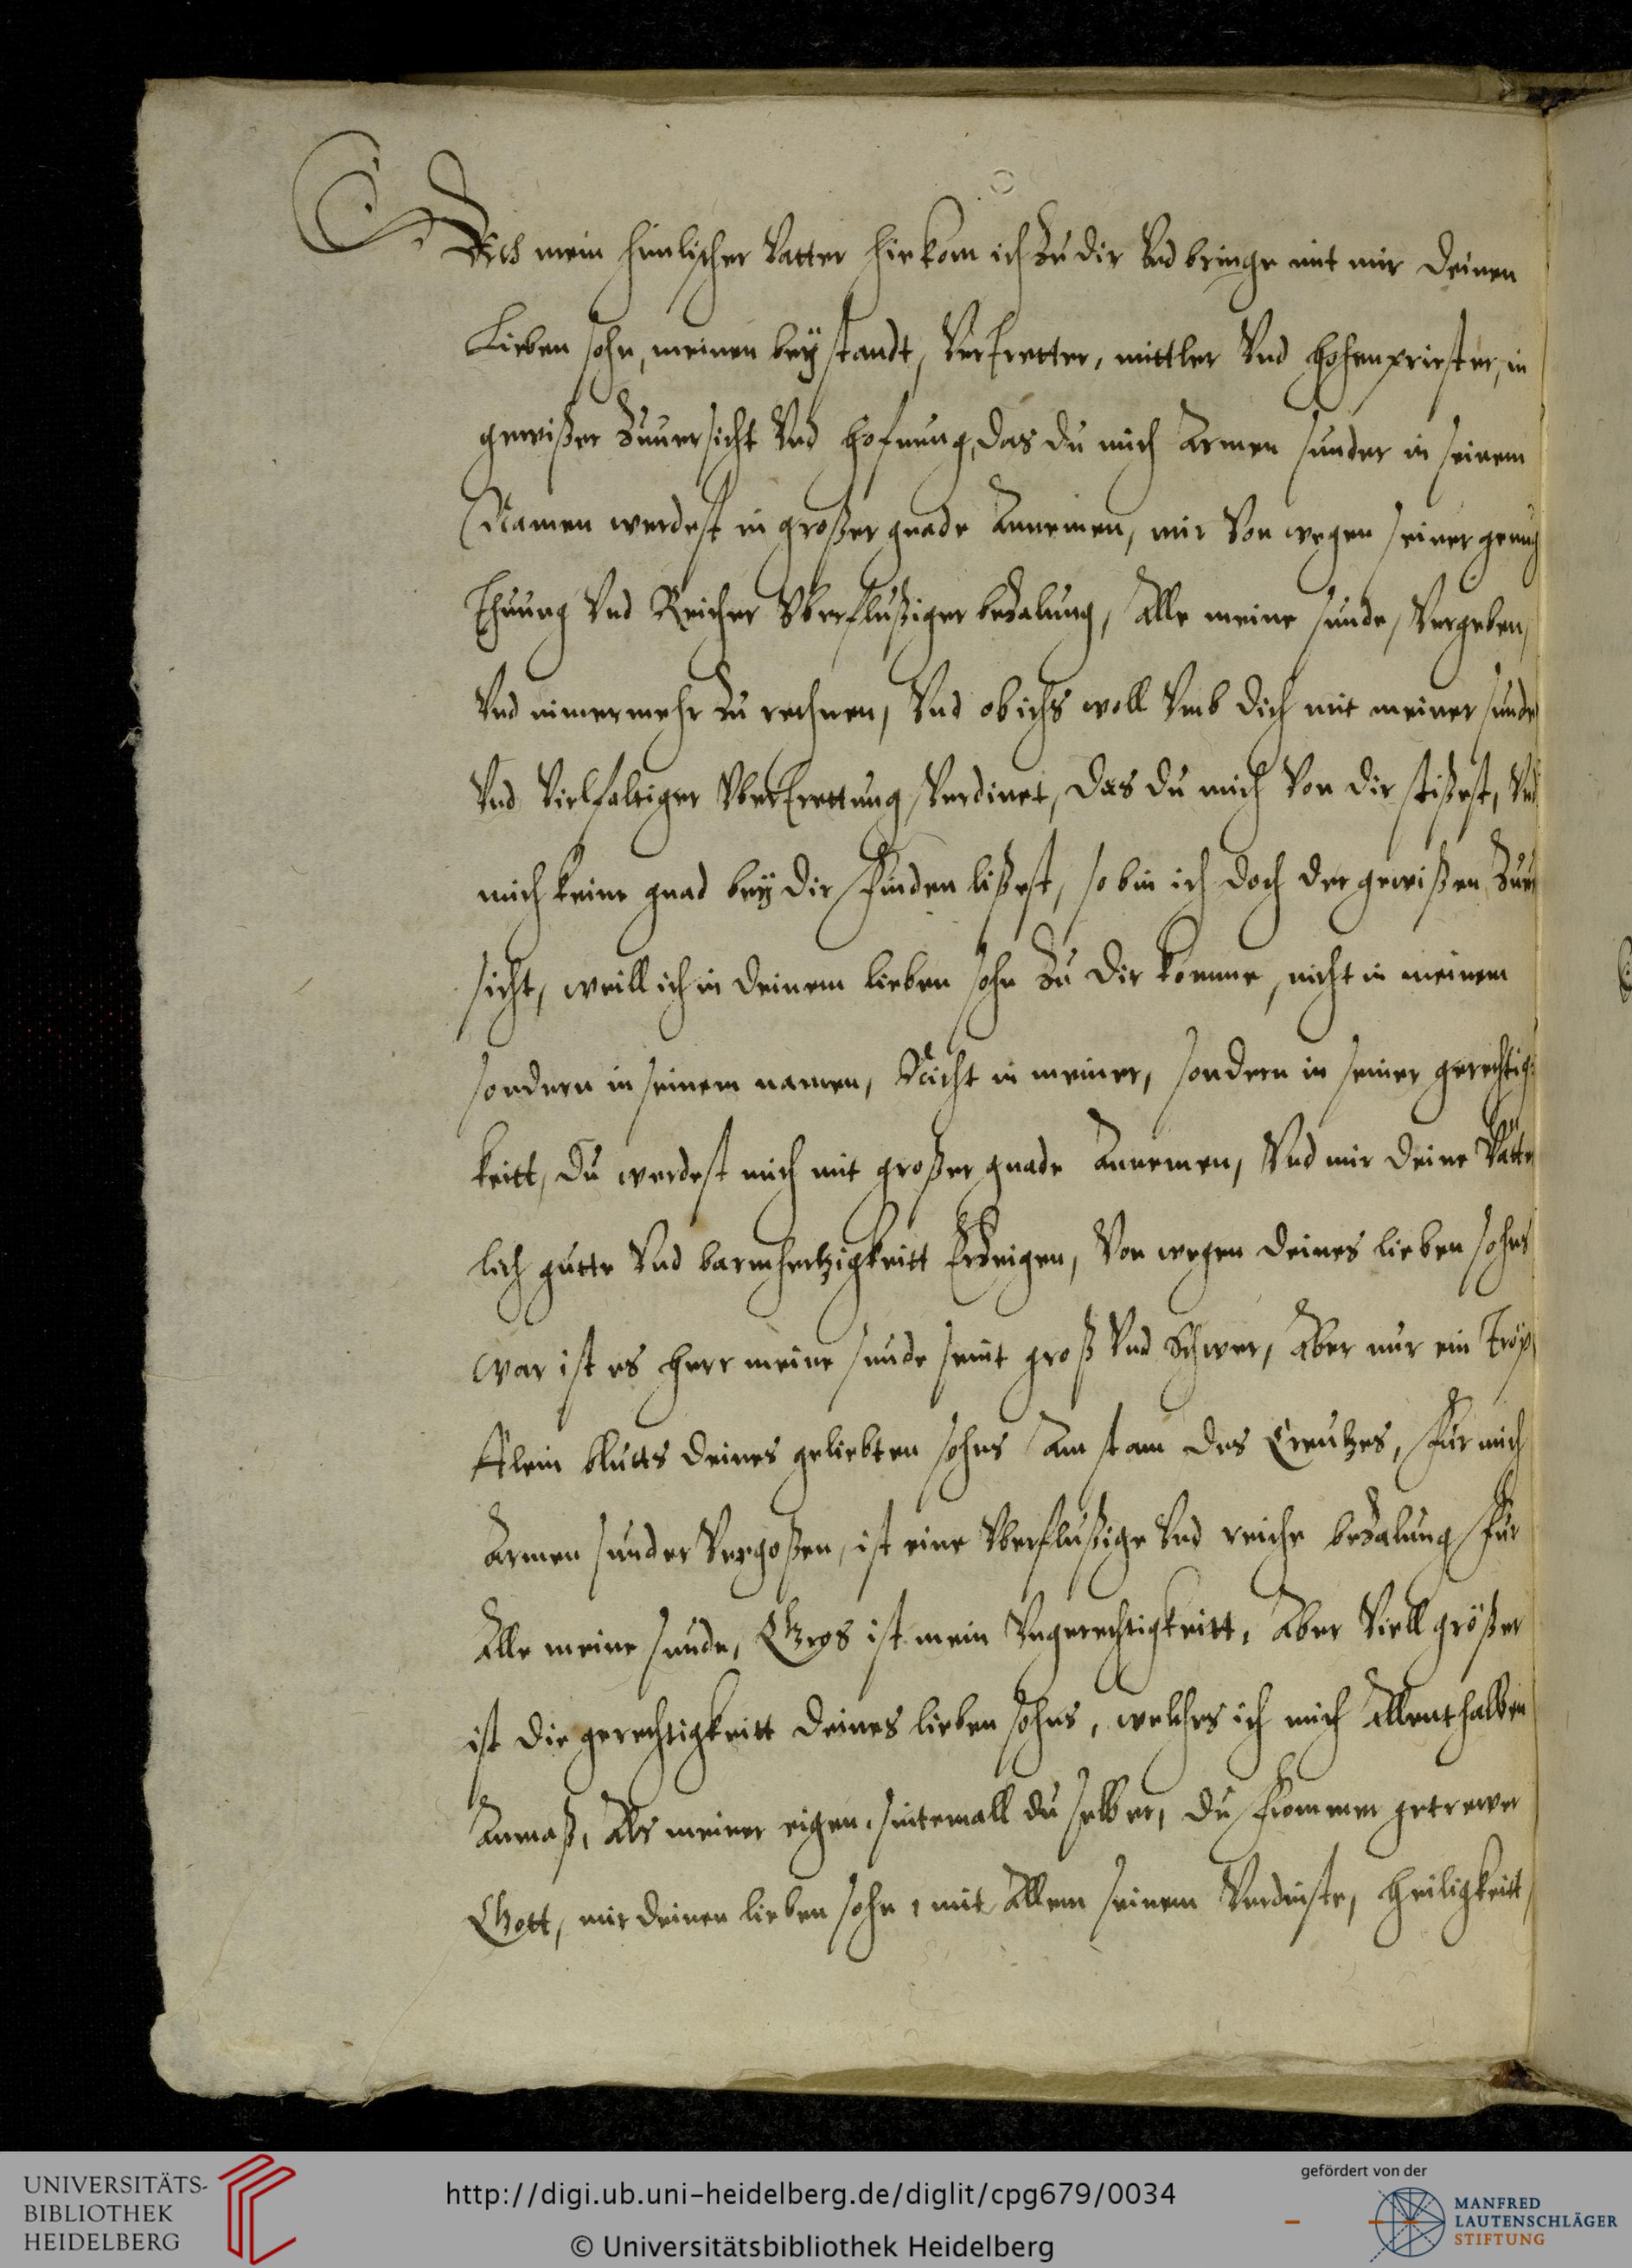 Ach mein himlischer Vatter hie kom ich Zu dir Vnd bringe mit mir deinen
Lieben sohn, meinen beÿstandt, Vertretter, mittler Vnd hohenpriester, in
gewißer Zuuersicht Vnd hofnung, das du mich Armen sunder in seinem
Namen werdest in großer gnade Annemen, mir Von wegen seiner genug
thuung Vnd Reicher Vberflußiger bezalung, Alle meine sunde, Vergeben,
Vnd nimermehr Zu rechnen, Vnd ob ichs woll Vmb dich mit meiner sunde
Vnd Vielfaltiger Vbertrettung Verdinet, das du mich Von dir stißest, Vnd
mich keine gnad beÿ dir finden lißest, so bin ich doch der gewißen Zuuer
sicht, weill ich in deinem lieben sohn Zu dir komme, nicht in meinem
sondern in seinem namen, Nicht in meiner, sondern in seiner gerechtig:
keitt, du werdest mich mit großer gnade Annemen, Vnd mir deine Vätter
lich gutte Vnd barmhertzigkeitt Erzeigen, Von wegen deines lieben sohns
war ist es herr meine sunde seint groß Vnd Schwer, Aber nur ein Tröp
fflein blutts deines geliebten sohns Am stam des Creutzes, fur mich
Armen sunder Vergoßen, ist eine Vberflußige Vnd reiche bezalung fur
Alle meine sunde, Gros ist mein Vngerechtigkeitt, Aber Viell größer
ist die gerechtigkeitt deines lieben sohns, welches ich mich Allenthalben
Anmaß, Als meiner eigen, sintemall du selber, du frommer getrewer
Gott, mir deinen lieben sohn, mit Allem seinem Verdinste, heiligkeitt,
UNIVERSITÄTS-
BIBLIOTHEK
HEIDELBERG
http://digi.ub.uni-heidelberg.de/diglit/cpg679/0034
© Universitätsbibliothek Heidelberg
gefördert von der
MANFRED
LAUTENSCHLÄGER
STIFTUNG